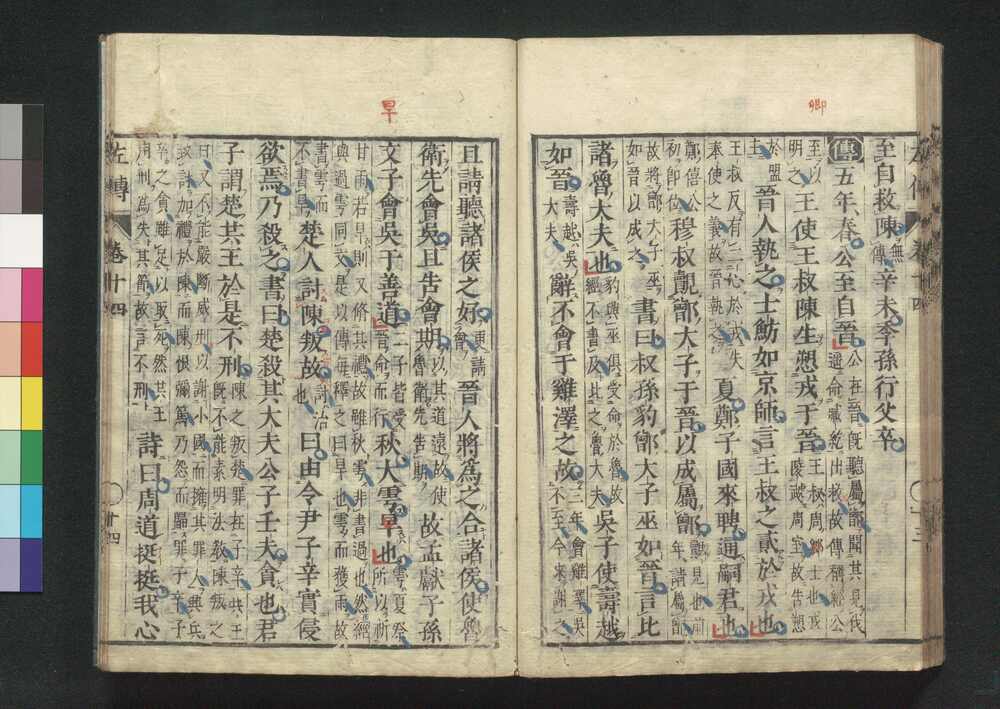 卿
左傳 卷十四 十三
至自救陳無傳辛未季孫行父卒
傳五年春公至自晉公在晉既聽屬鄫聞其見伐遥命臧紇出救故傳稱經公
至以明之王使王叔陳生愬戎于晉王叔周卿士也戎陵虣周室故告愬
於盟主晉人執之士魴如京師言王叔之貳於戎也
王叔反有二心於戎失奉使之義故晉執之夏鄭子國來聘通嗣君也
鄭僖公初即位穆叔覿鄫大子于晉以成屬鄫覿見也前年請屬鄫
故將鄫大子巫如晉以成之書曰叔孫豹鄫大子巫如晉言比
諸魯大夫也豹與巫俱受命於魯故經不書及比之魯大夫吳子使壽越
如晉壽越吳大夫辭不會于雞澤之故三年會雞澤吳不至今來謝之
旱
且請聽諸侯之好更請會晉人將為之合諸侯使魯
衛先會吳且告會期以其道遠故使魯衛先告期故孟獻子孫
文子會吳于善道二子皆受晉命而行秋大雩旱也雩夏祭所以祈
甘雨若旱則又脩其禮故雖秋雩非書過也然經與過雩同文是以傳每釋之曰旱也雩而獲雨故
書雩而不書旱楚人討陳叛故討治也曰由令尹子辛實侵
欲焉乃殺之書曰楚殺其大夫公子壬夫貪也君
子謂楚共王於是不刑陳之叛楚罪在子辛共王既不能素明法教陳叛之
日又不能嚴斷威刑以謝小國而擁其罪人興兵致討加禮於陳而陳恨彌篤乃怨而歸罪子辛子
辛之貪雖足以取死然共王用刑為失其節故言不刑詩曰周道挺挺我心
左傳 卷十四 十四